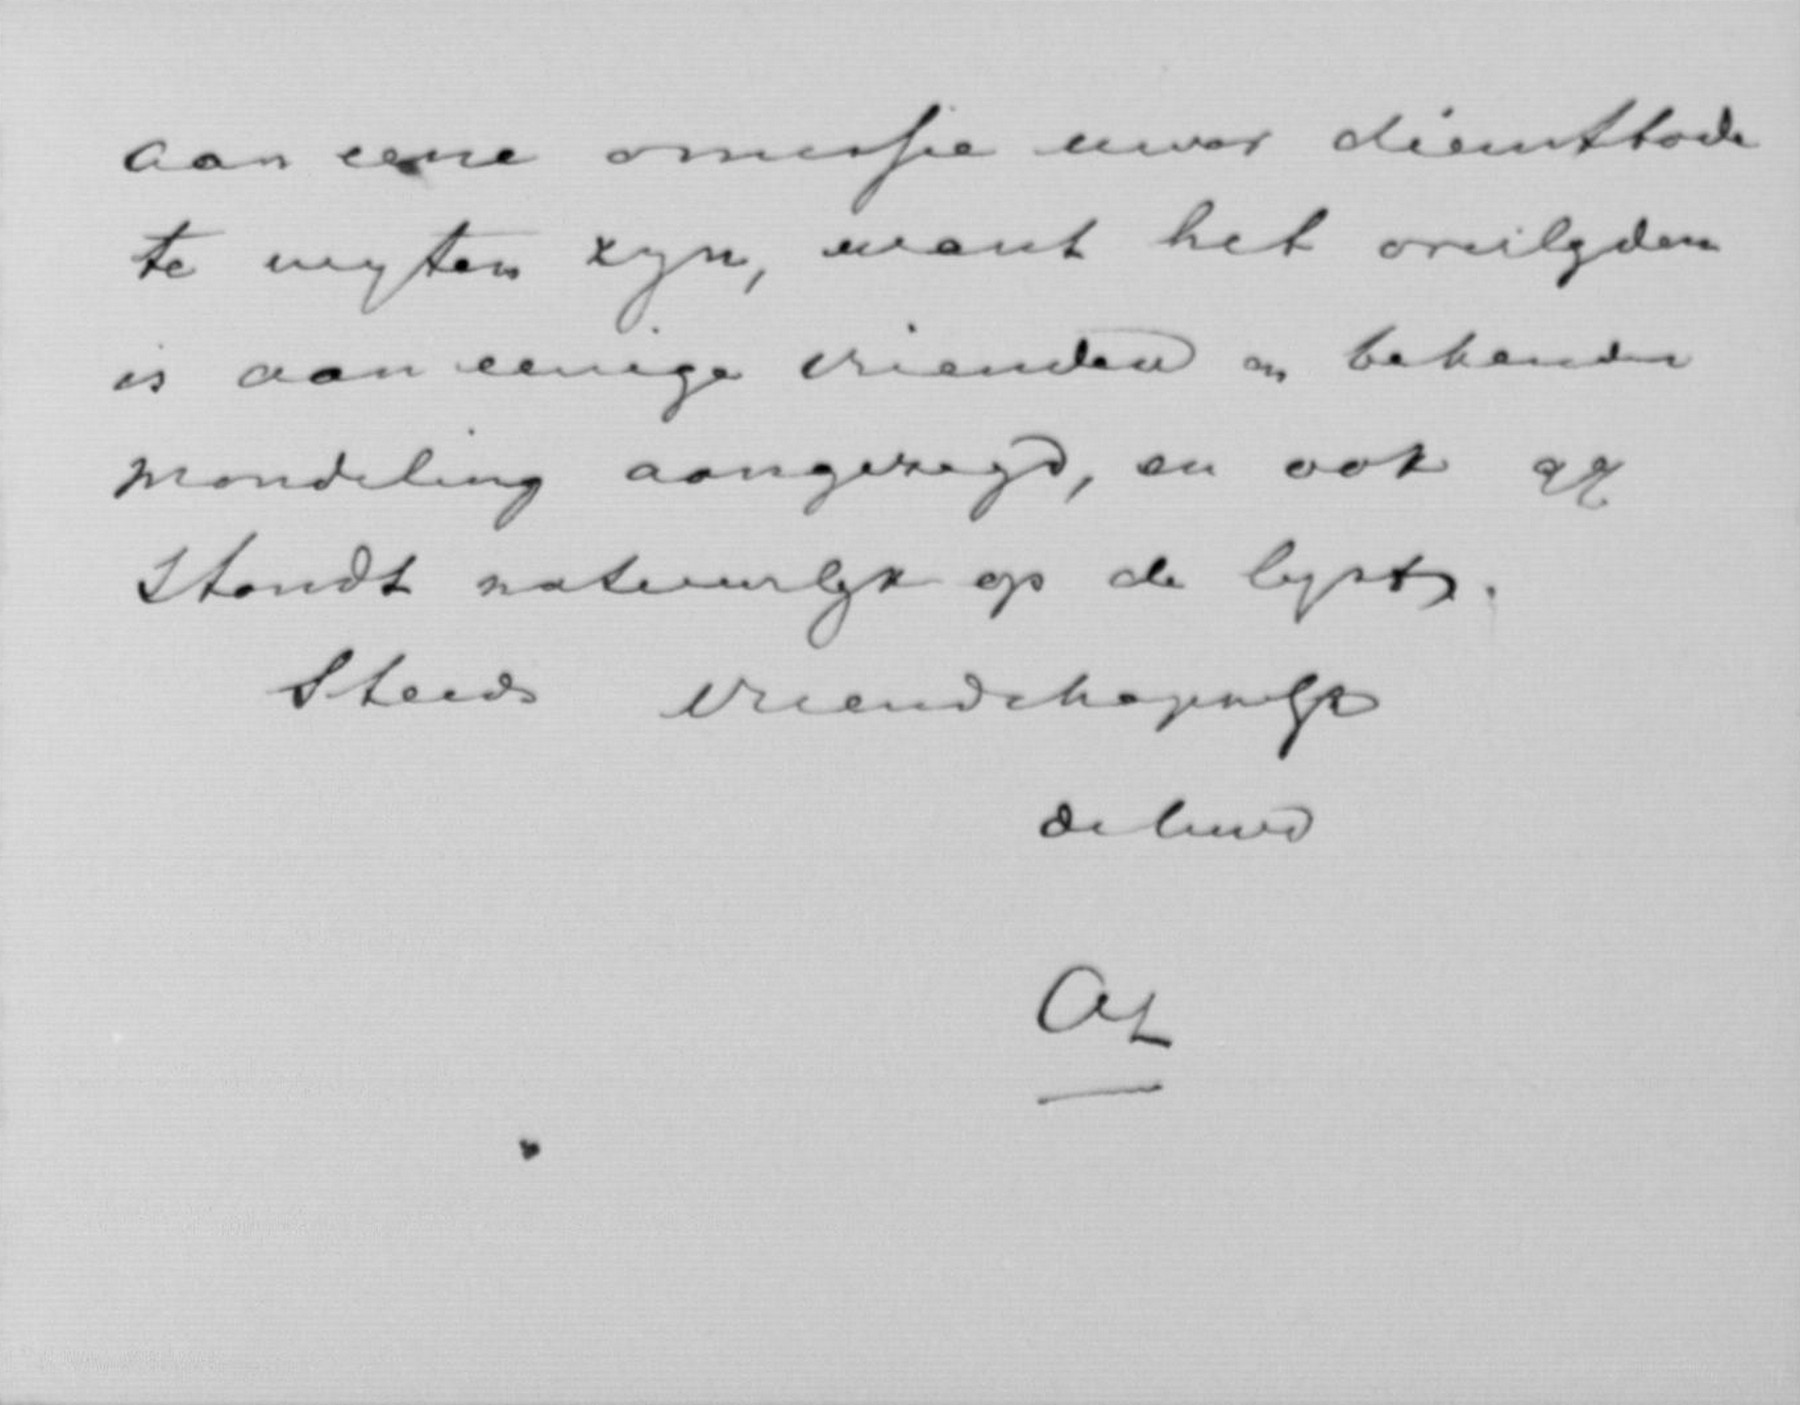 aan eene omissie uwer dienstbode
te wyten zyn, want het overlyden
is aan eenige vrienden en bekenden
mondeling aangezegd, en ook gy
stondt natuurlyk op de lyst.
Steeds vriendschappelyk
de uwe